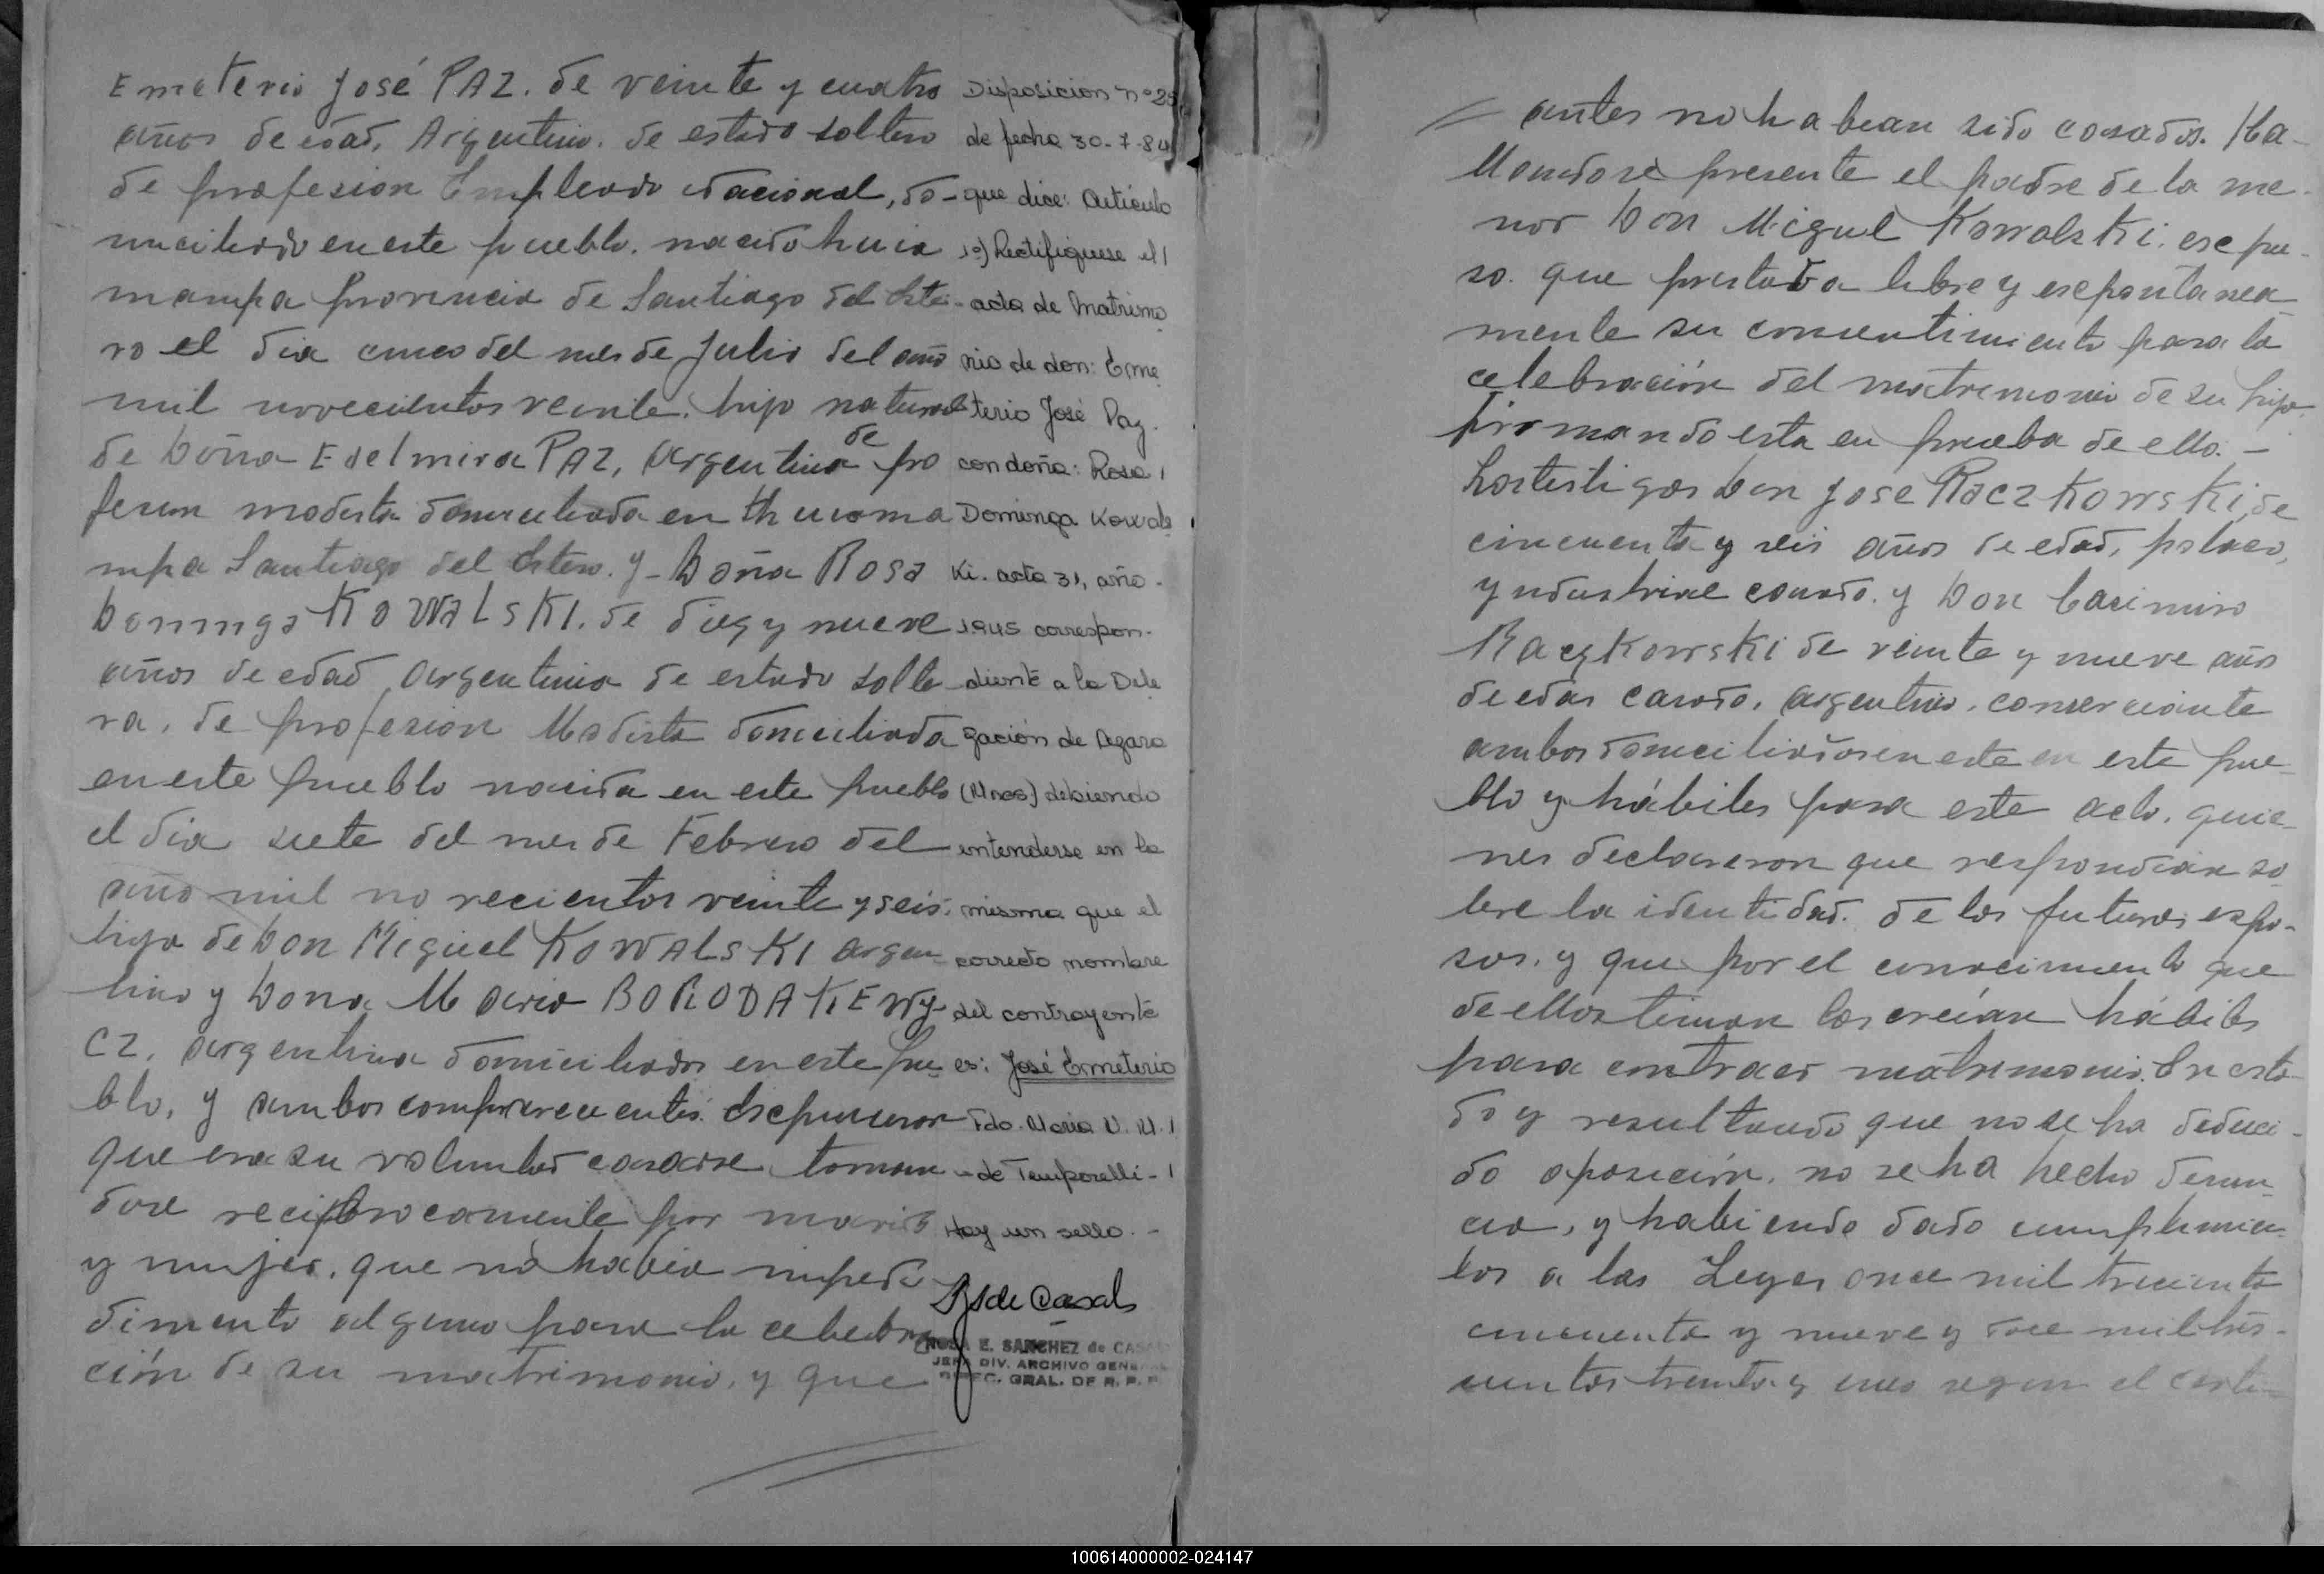 Emeterio José PAZ. de veinte y cuatro
años de edad, Argentino. de estado soltero
de profesion Empleado Nacional, do-
miciliado en este pueblo. nacido huia
mampa provincia de Santiago del Este-
ro el dia cinco del mes de Julio del año
mil novecientos veinte. hijo natural
de Doña Edelmira PAZ, argentina de pro
fesion modista domiciliada en
mpa Santiago del Estero. y - Doña Rosa
Dominga KOWALSKI. de diez y nueve
años de edad argentina de estado solte
ra, de profesion Modista domiciliada
en este pueblo nacida en este pueblo
el dia siete del mes de Febrero del
año mil novecientos veinte y seis,
hija de Don Miguel KOWALSKI argen
tino y Dona Maria BORODAKIEWY-
CZ. argentina domiciliados en este pue
blo, y ambos comparecientes. Expusieron
que era su voluntad casarse toman-
dose reciprocamente por marido
y mujer, que no habia impedi
dimento alguno para la celebra
ción de su matrimonio, y que
Disposicion nº 25
de fecha 30-7-84
que dice: Artículo
1º) Rectifiquese el
acta de Matrimo
nio de don: Eme
terio José Paz.
con doña: Rosa
Dominga Kowals
ki. acta 31, año
1945 correspon-
diente a la Dele
gación de Azara
(Mnes) debiendo
entenderse en la
misma que el
correcto nombre
del contrayente
es: José Emeterio
Fdo. Maria V. M.
de Temporelli-
Hay un sello. -
RSde Casals
ROSA E. SANCHEZ de CASA
JEFA DIV. ARCHIVO GENERAL
DIREC. GRAL. DE R. P. P
antes no habean sido casados. Ha-
llandose presente el padre de la me-
nor Don Miguel Kowalski. expu-
so. que prestaba libre y esepontanea
mente su consentimiento para la
celebración del matrimonio de su hija
firmando esta en prueba de ello. -
Los testigos Don Jose Raczkowski, de
cincuenta y seis años de edad, polaco,
yndustrial casado. y Don Casimiro
Raczkowski de veinte y nueve años
de edad casado, argentino, comerciante
ambos domiciliados en este en este pue-
blo y hábiles para este acto, quie-
nes declararon que respondian so
bre la identidad. de los futuros espo-
sos. y que por el conocimiento que
de ellos tienen los creían hábiles
para contraer matrimonio. En esta-
do y resultando que no se ha deduci-
do oposición, no se ha hecho denun-
cia, y habiendo dado cumplimien-
tos a las Leyes once mil trecientos
cincuenta y nueve y doce mil tres-
cientos treinta y uno segun el certi-
100614000002-024147